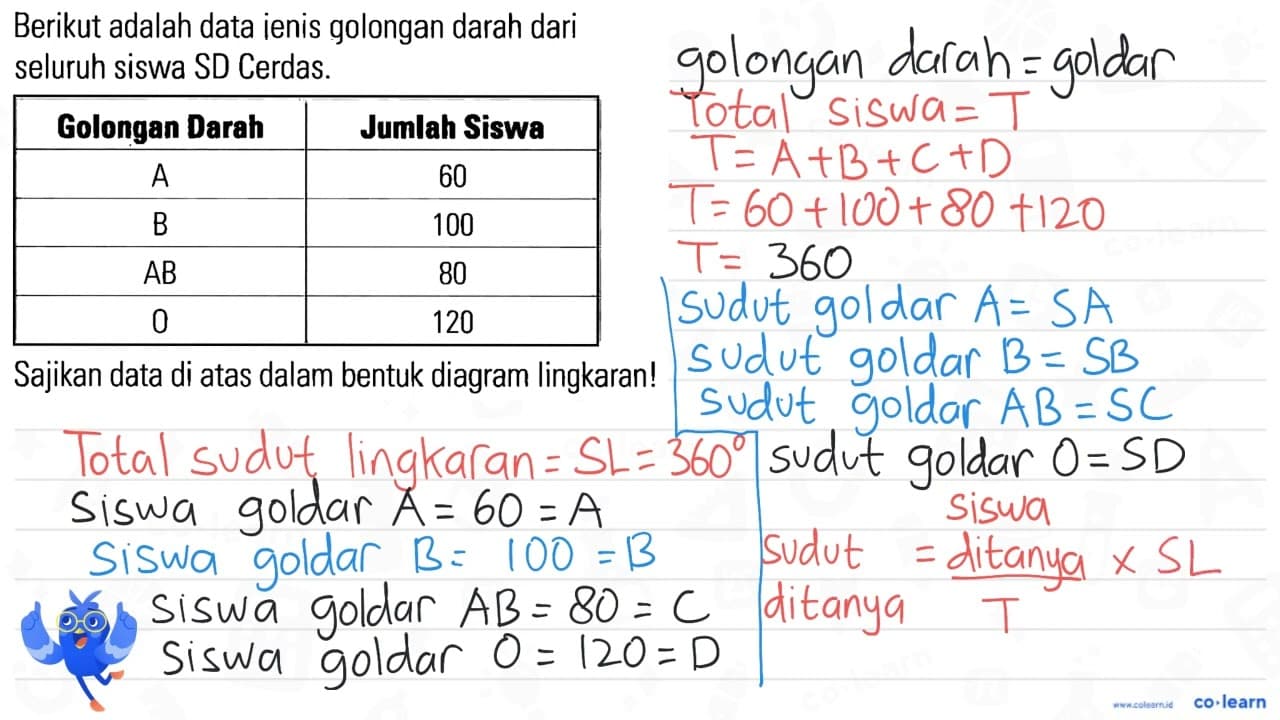 Berikut adalah data jenis golongan darah dari
seluruh siswa SD Cerdas.
Golongan Darah Jumlah Siswa
A 60
B 100
AB 80
O 120
Sajikan data di atas dalam bentuk diagram lingkaran!
Total sudut lingkaran = SL = 360°
Siswa goldar A = 60 = A
Siswa goldar B = 100 = B
siswa goldar AB = 80 = C
Siswa goldar O = 120 = D
golongan darah = goldar
Total siswa = T
T = A + B + C + D
T = 60 + 100 + 80 + 120
T = 360
sudut goldar A = SA
sudut goldar B = SB
sudut goldar AB = SC
sudut goldar O = SD
siswa
sudut = ditanya × SL
ditanya T
www.colearn.id co·learn